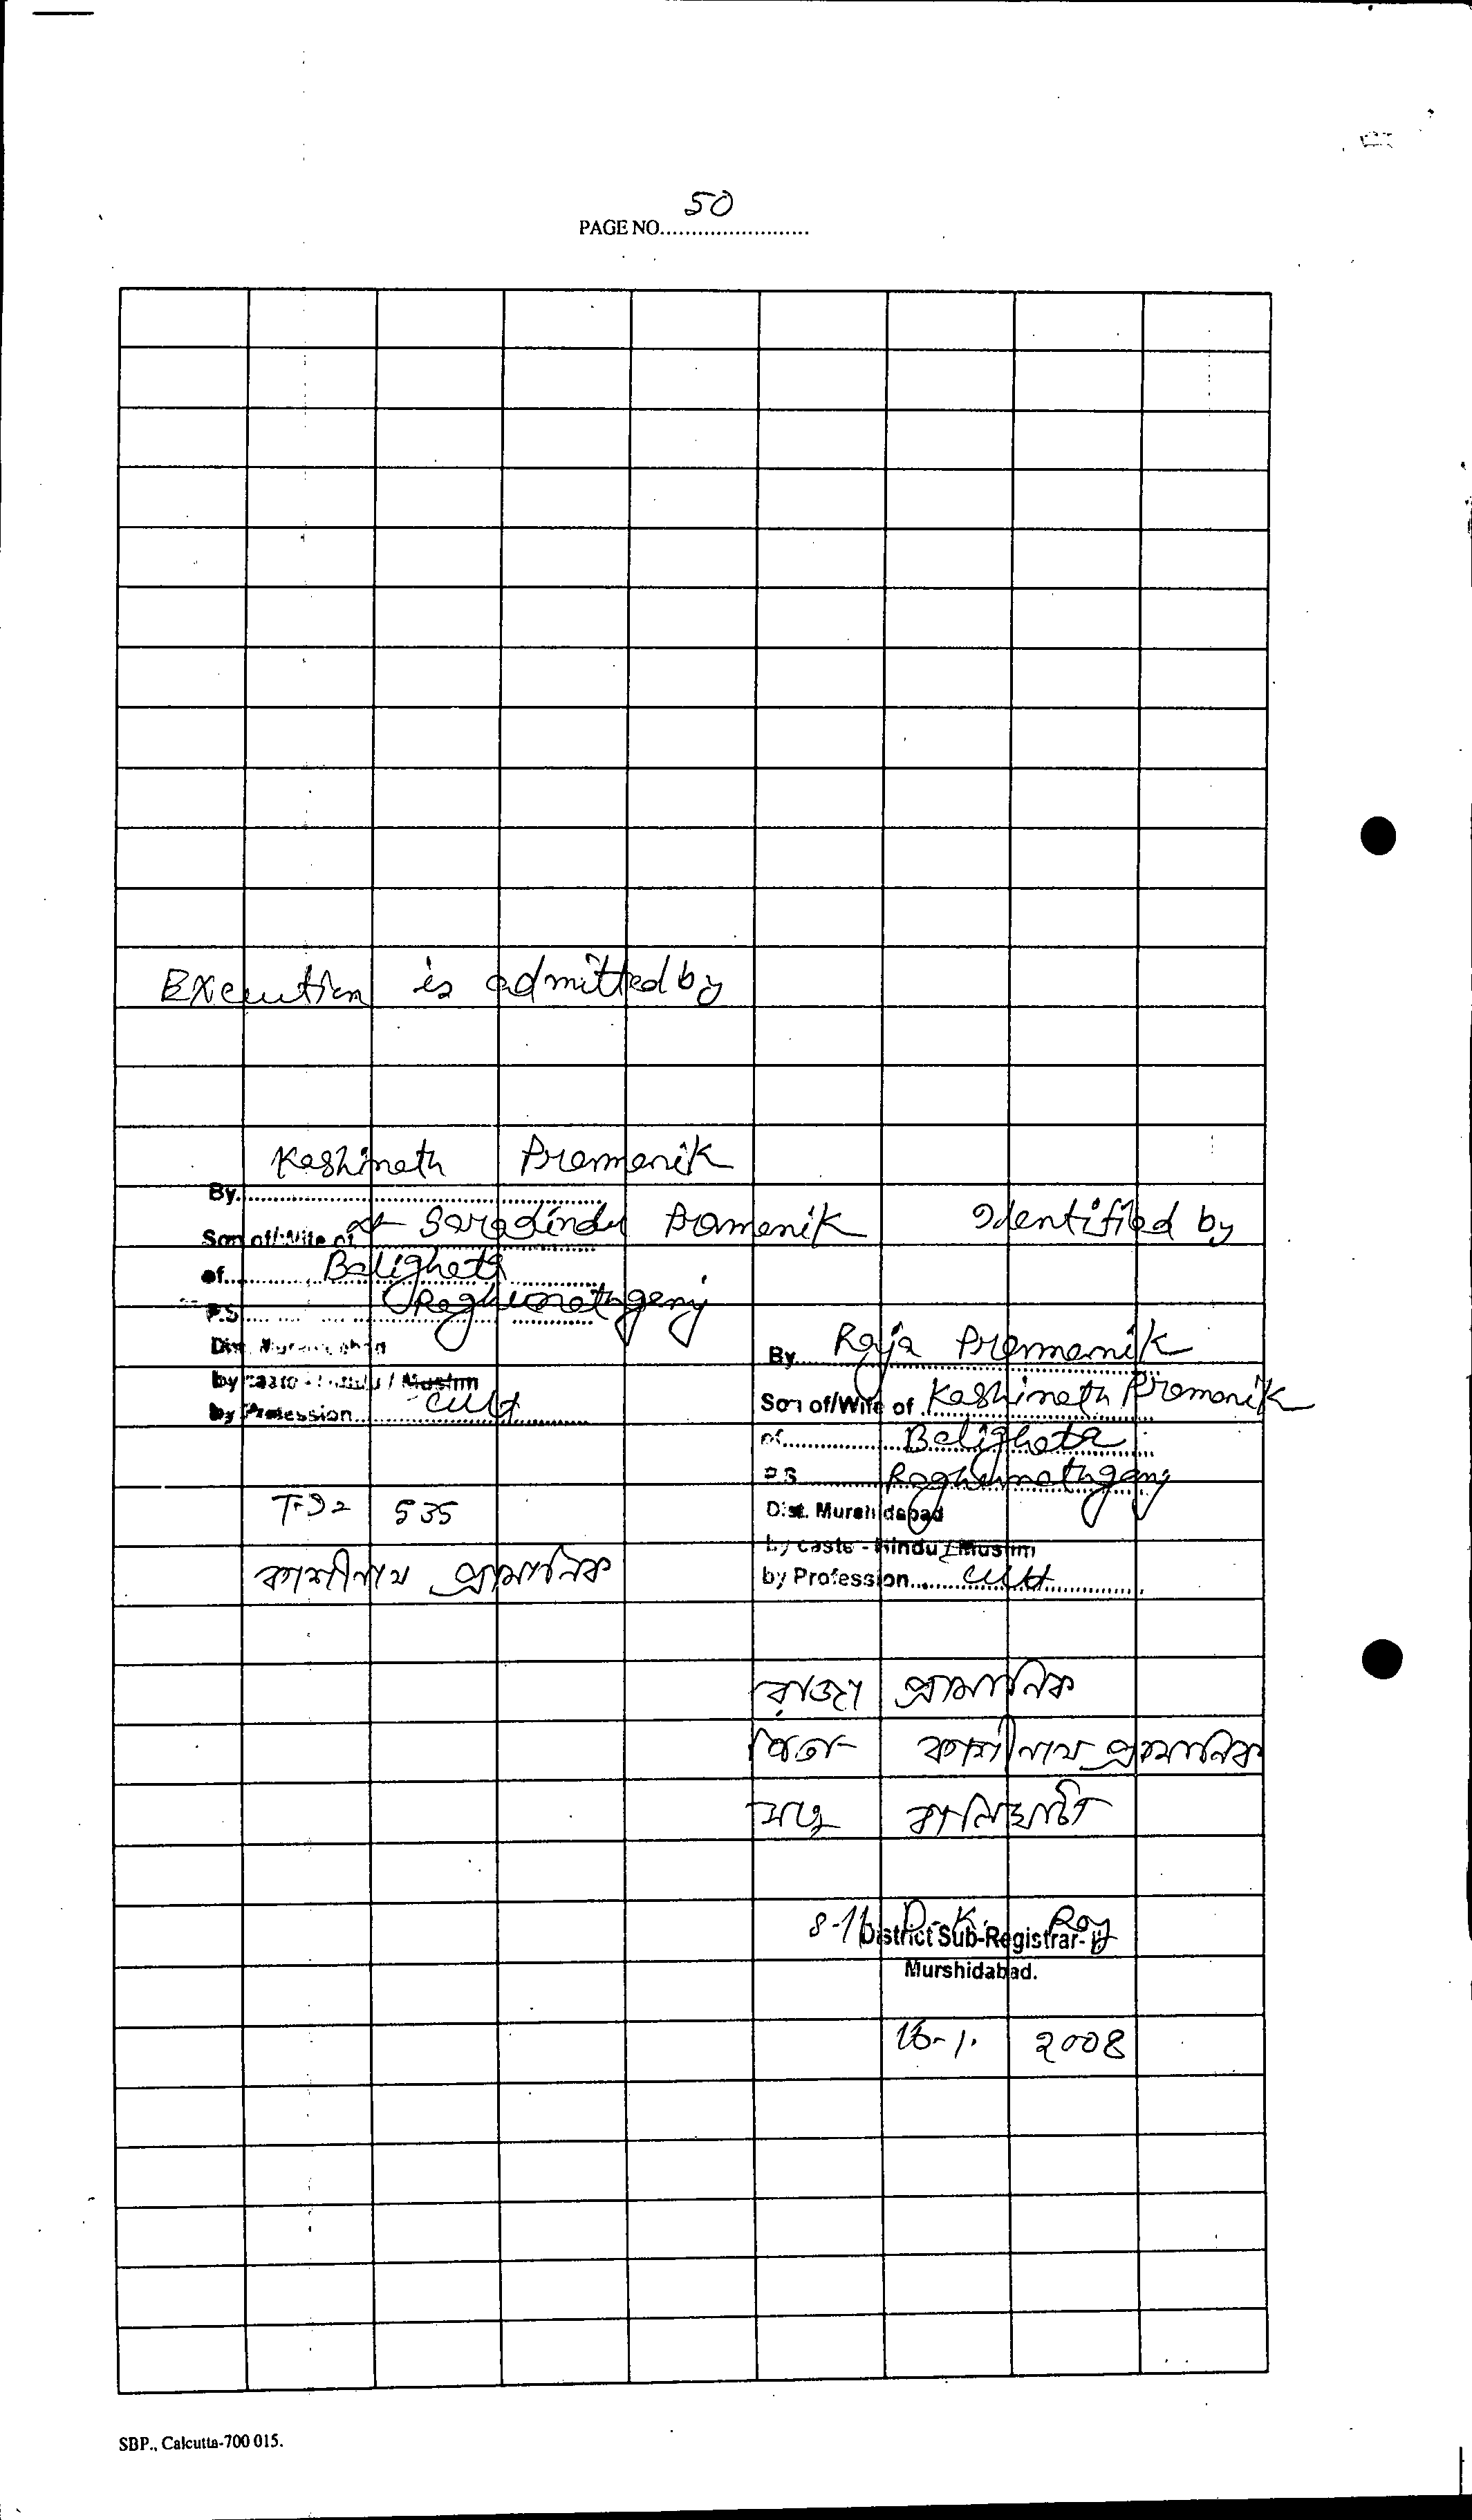 50
PAGE NO........................
Execution is admitted by
Kashinath Pramanik
By.
Son of/Wife of Lt Saradindu Pramanik
of Balighata
P.S. Raghunathganj
Dist. Murshidabad
by caste - Hindu / Muslim
by Profession cult
T-I 535
কাশীনাথ প্রামানিক
Identified by
By Raja Pramanik
Son of/Wife of Kashinath Pramanik
of Balighata
P.S Raghunathganj
Dist. Murshidabad
by caste - Hindu / Muslim
by Profession cult
রাজা প্রামানিক
পিতা কাশীনাথ প্রামানিক
সাং বালিঘাটা
D. K. Roy
District Sub-Registrar-II
Murshidabad.
16-1. 2008
SBP., Calcutta-700 015.